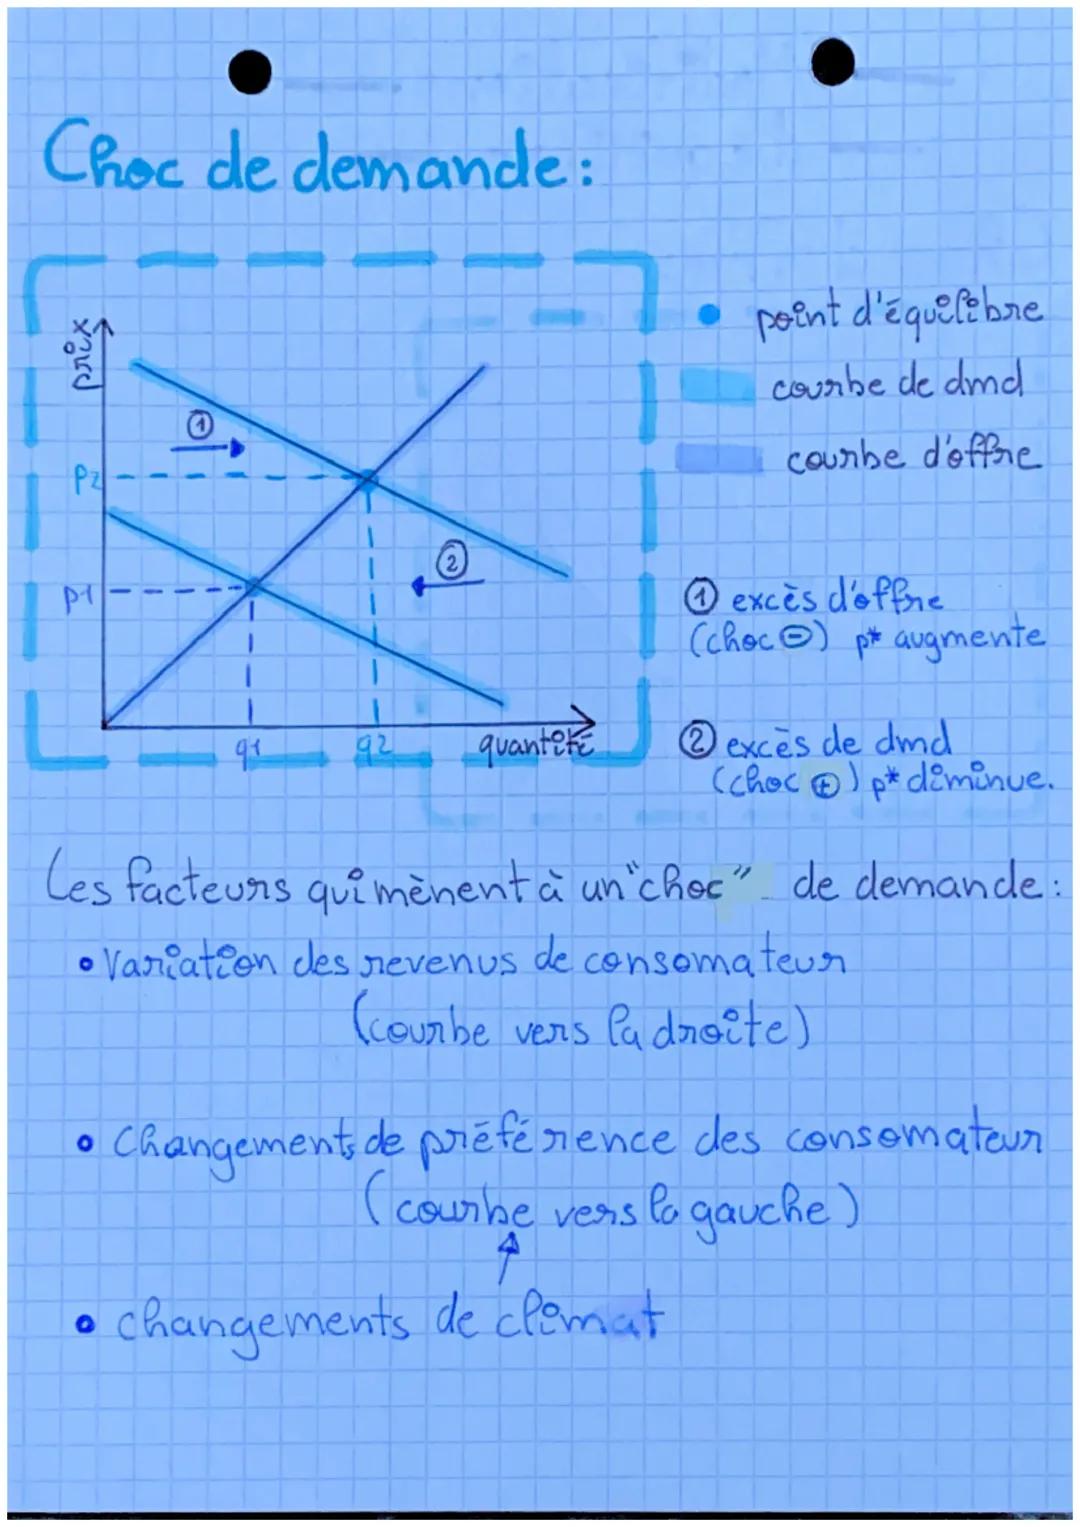 Choc de demande :
prix
point d'équilibre
courbe de dmd
①
courbe d'offre
P2
②
P1
① excès d'offre
(choc ⊖) p* augmente
q1 q2 quantité
② excès de dmd
(choc ⊕) p* diminue.
Les facteurs qui mènent à un "choc" de demande :
• Variation des revenus de consomateur
(courbe vers la droite)
• Changements de préférence des consomateur
(courbe vers la gauche)
• changements de climat